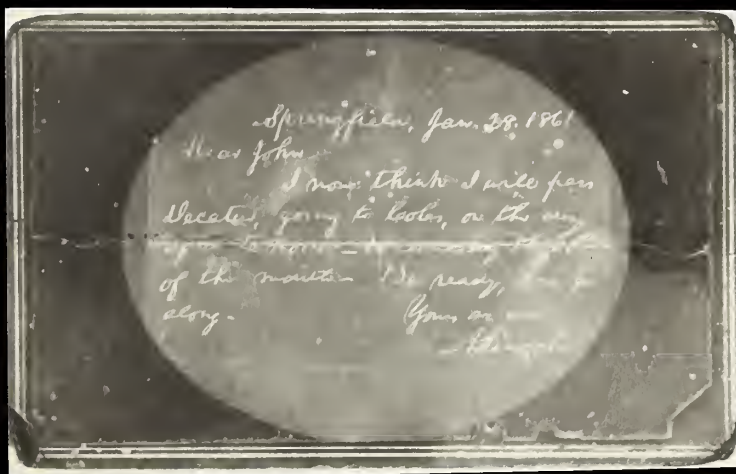 Springfield, Jan. 28. 1861
Dear John
I now think I will pass
Decatur, going to Coles, on the
of the month Be ready,
along. Yours as
A. Lincoln